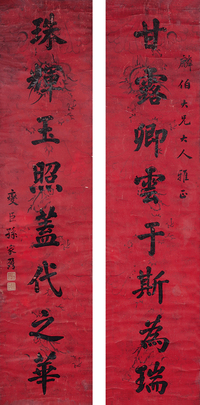 麟伯大兄大人雅正
甘露卿雲于斯為瑞
珠輝玉照蓋代之華
燮臣孫家鼐